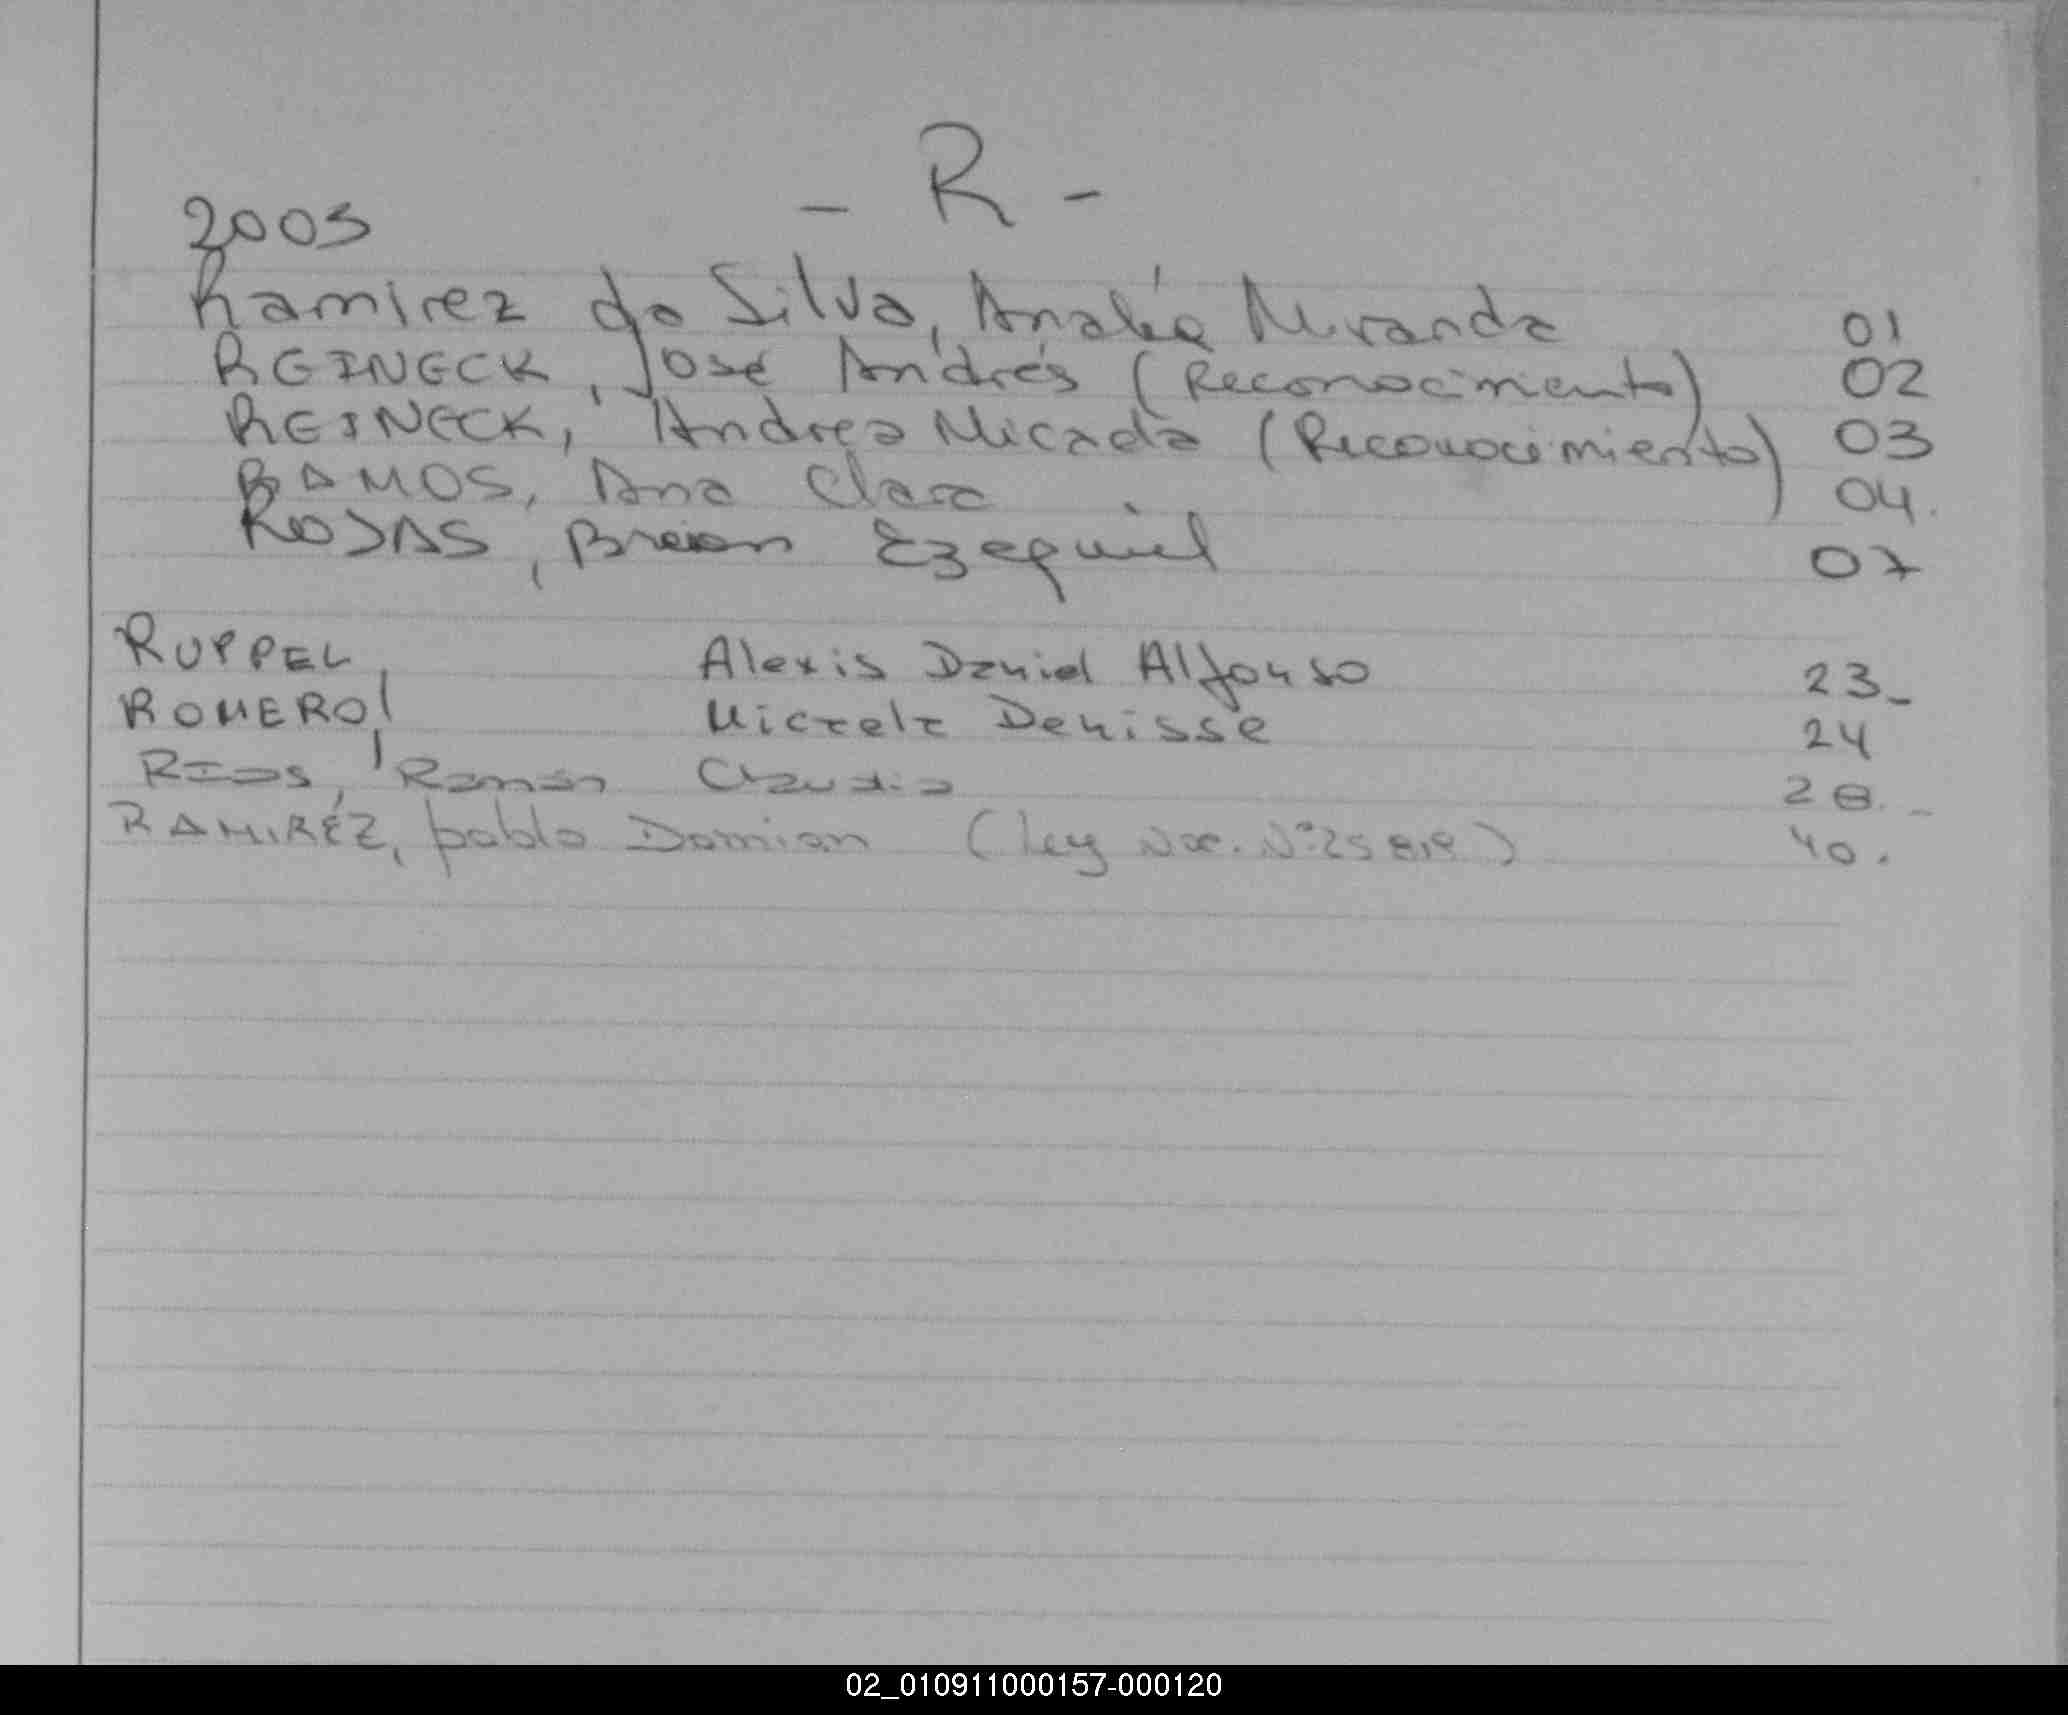 - R -
2005
Ramirez da Silva, Analía Miranda 01
REINECK, José Andrés (Reconocimiento) 02
REINECK, Andrea Micaela (Reconocimiento) 03
RAMOS, Ana Clara 04.
ROJAS, Breian Ezequiel 07
RUPPEL, Alexis Daniel Alfonso 23_
ROMERO, Micaela Denisse 24
RIOS, Ramón Claudio 28.-
RAMIRÉZ, pablo Damian (ley Nac. Nº25819) 40.
02_010911000157-000120